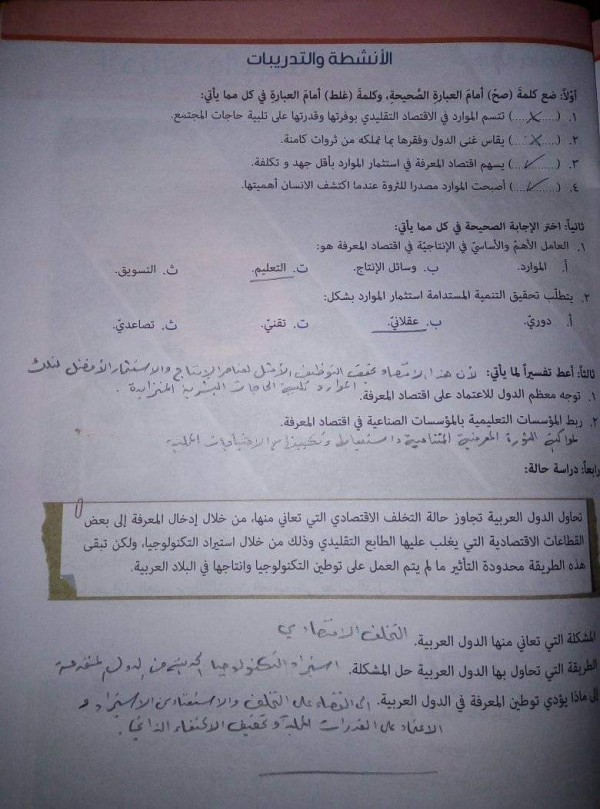 الأنشطة والتدريبات
أوّلاً: ضع كلمة (صح) أمامَ العبارةِ الصَّحيحةِ، وكلمةَ (غلط) أمامَ العبارةِ في كل مما يأتي:
١. (......✗......) تتسم الموارد في الاقتصاد التقليدي بوفرتها وقدرتها على تلبية حاجات المجتمع.
٢. (......✗......) يقاس غنى الدول وفقرها بما تملكه من ثروات كامنة.
٣. (......✓......) يسهم اقتصاد المعرفة في استثمار الموارد بأقل جهد و تكلفة.
٤. (......✓......) أصبحت الموارد مصدرا للثروة عندما اكتشف الانسان أهميتها.
ثانياً: اختر الإجابة الصحيحة في كل مما يأتي:
١. العامل الأهمّ والأساسيّ في الإنتاجيّة في اقتصاد المعرفة هو:
أ. الموارد. ب. وسائل الإنتاج. ت. التعليم. ث. التسويق.
٢. يتطلّب تحقيق التنمية المستدامة استثمار الموارد بشكل:
أ. دوريّ. ب. عقلانيّ. ت. تقنيّ. ث. تصاعديّ.
ثالثاً: أعط تفسيراً لما يأتي: لأن هذا الاقتصاد يحقق التوظيف الأمثل لعناصر الإنتاج والاستثمار الأفضل لتلك
الموارد لتلبية الحاجات البشرية المتزايدة.
١. توجه معظم الدول للاعتماد على اقتصاد المعرفة.
٢. ربط المؤسسات التعليمية بالمؤسسات الصناعية في اقتصاد المعرفة.
لمواكبة الثورة المعرفية المتنامية واستيعابها وتكييفها مع الاحتياجات المحلية
رابعاً: دراسة حالة:
تحاول الدول العربية تجاوز حالة التخلف الاقتصادي التي تعاني منها، من خلال إدخال المعرفة إلى بعض
القطاعات الاقتصادية التي يغلب عليها الطابع التقليدي وذلك من خلال استيراد التكنولوجيا، ولكن تبقى
هذه الطريقة محدودة التأثير ما لم يتم العمل على توطين التكنولوجيا وانتاجها في البلاد العربية.
المشكلة التي تعاني منها الدول العربية. التخلف الاقتصادي
الطريقة التي تحاول بها الدول العربية حل المشكلة. استيراد التكنولوجيا الحديثة من الدول المتقدمة
إلى ماذا يؤدي توطين المعرفة في الدول العربية. إلى القضاء على التخلف والاستغناء عن الاستيراد و
الاعتماد على القدرات المحلية وتحقيق الاكتفاء الذاتي.